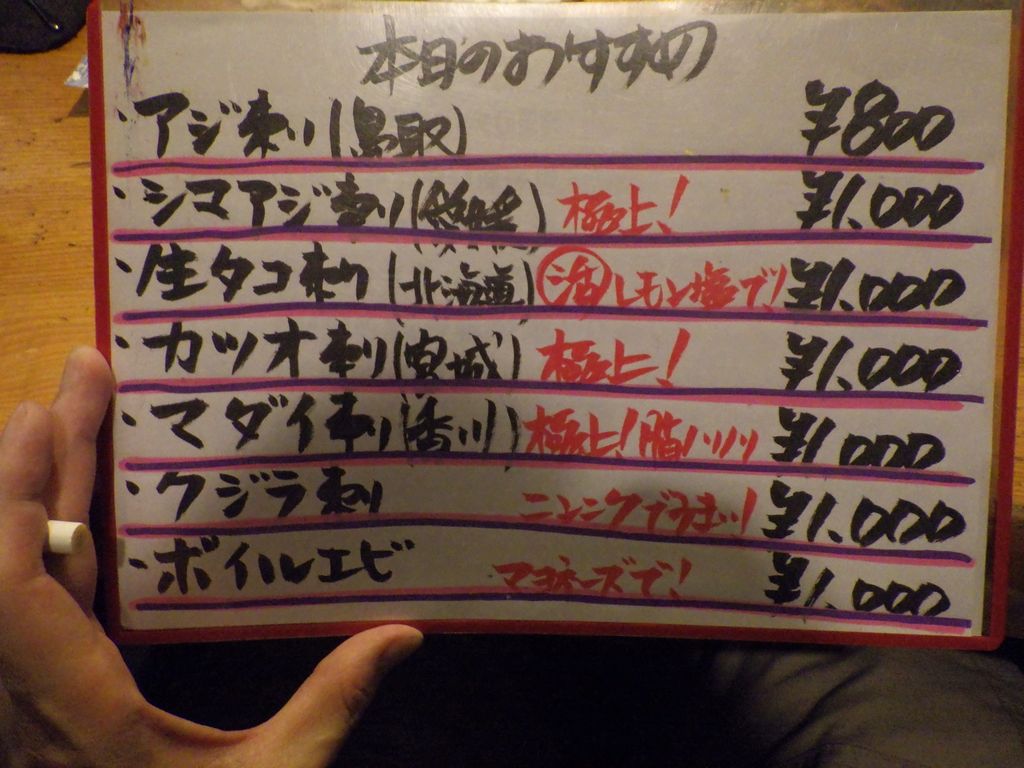 本日のおすすめ
・アジ刺(鳥取) ¥800
・シマアジ刺(愛媛) 極上! ¥1.000
・生タコ刺(北海道) 活 レモン塩で! ¥1.000
・カツオ刺(宮城) 極上! ¥1.000
・マダイ刺(香川) 極上!脂ノリノリ ¥1.000
・クジラ刺 ニンニクでうまい! ¥1.000
・ボイルエビ マヨネーズで! ¥1.000